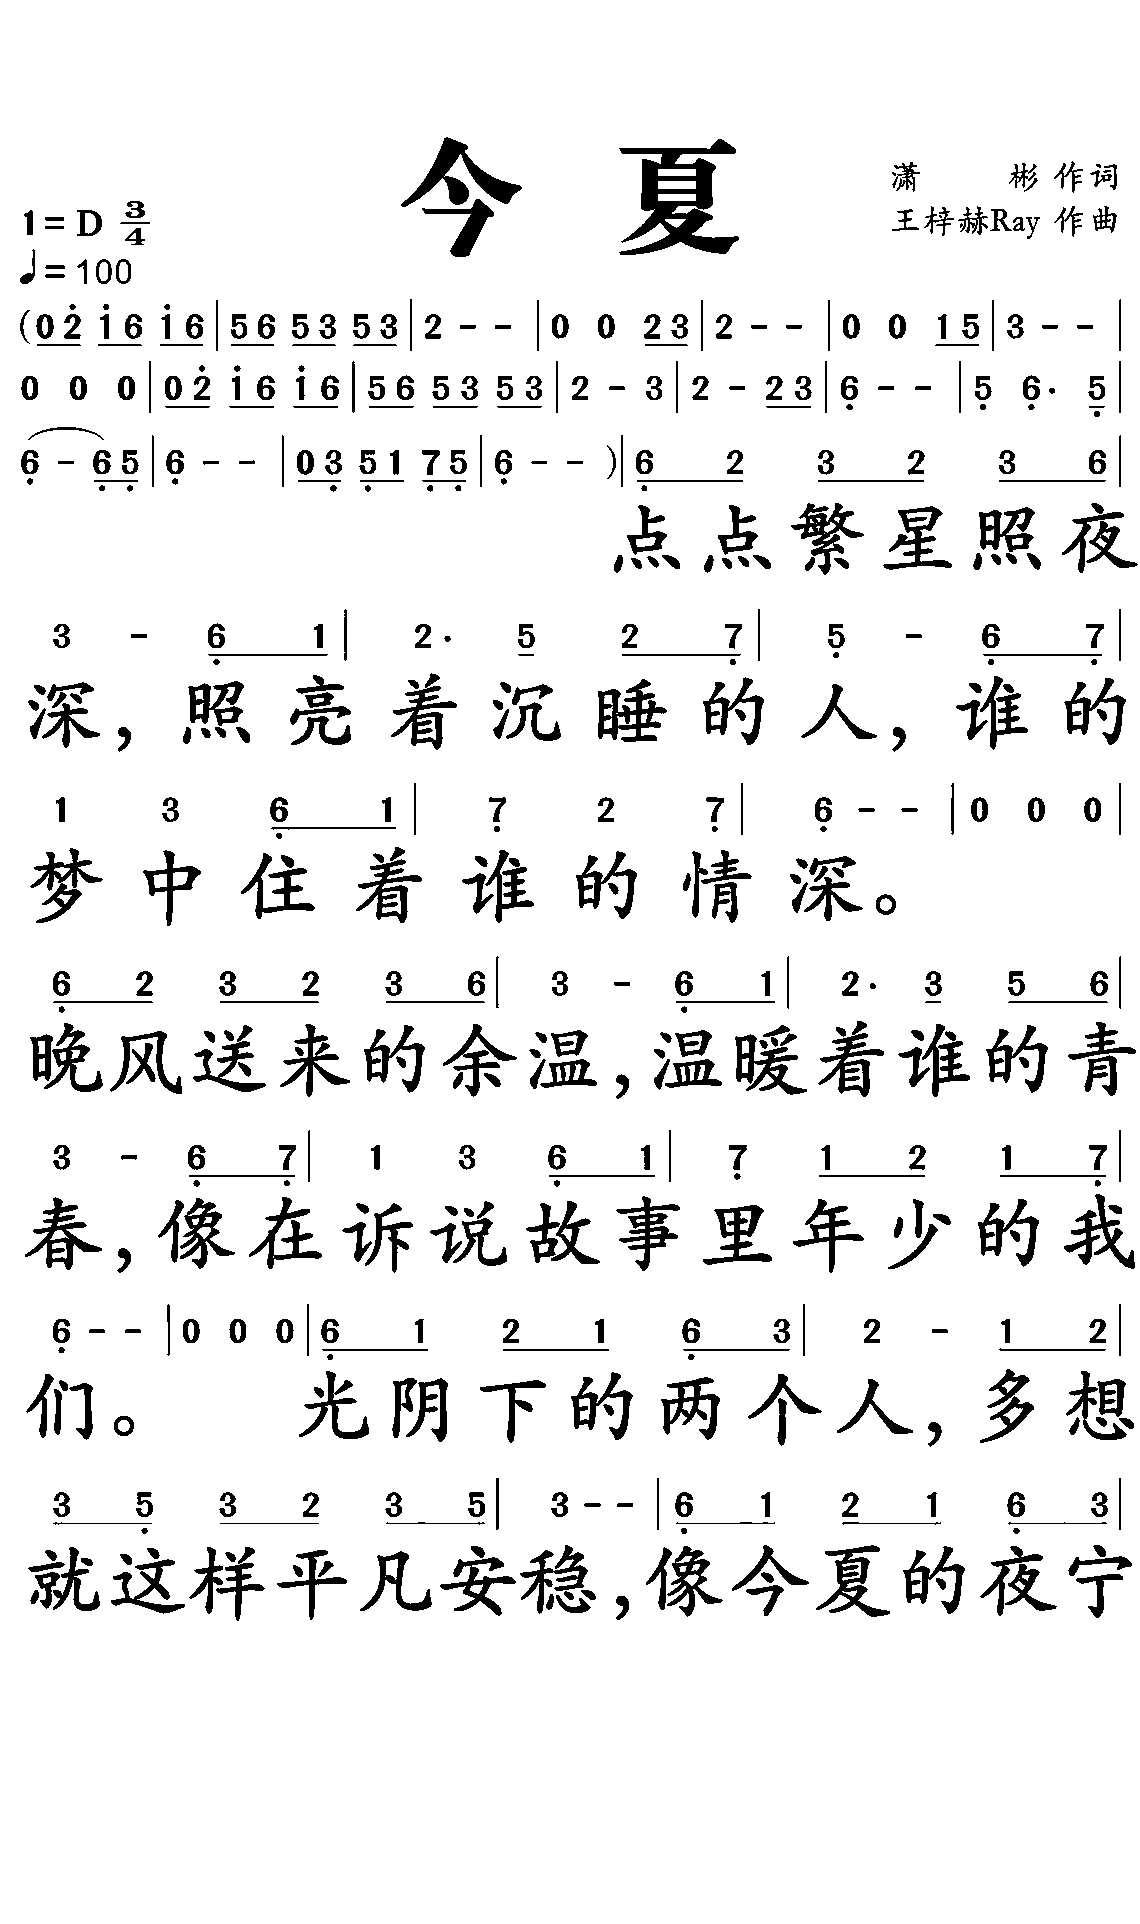 今夏
潇 彬 作词
1=D 3/4 王梓赫Ray 作曲
♩=100
(02̇ 1̇6 1̇6|56 53 53|2 - -|0 0 23|2 - -|0 0 15|3 - -|
0 0 0|02̇ 1̇6 1̇6|56 53 53|2 - 3|2 - 23|6̣ - -|5̣ 6̣· 5̣|
6̣ - 6̣5̣|6̣ - -|03̣ 5̣1 7̣5̣|6̣ - -)|6̣ 2 3 2 3 6|
点点繁星照夜
3 - 6̣ 1|2· 5 2 7̣|5̣ - 6̣ 7̣|
深,照亮着沉睡的人,谁的
1 3 6̣ 1|7̣ 2 7̣|6̣ - -|0 0 0|
梦中住着谁的情深。
6̣ 2 3 2 3 6|3 - 6̣ 1|2· 3 5 6|
晚风送来的余温,温暖着谁的青
3 - 6̣ 7̣|1 3 6̣ 1|7̣ 1 2 1 7̣|
春,像在诉说故事里年少的我
6̣ - -|0 0 0|6̣ 1 2 1 6̣ 3|2 - 1 2|
们。 光阴下的两个人,多想
3 5̣ 3 2 3 5|3 - -|6̣ 1 2 1 6̣ 3|
就这样平凡安稳,像今夏的夜宁